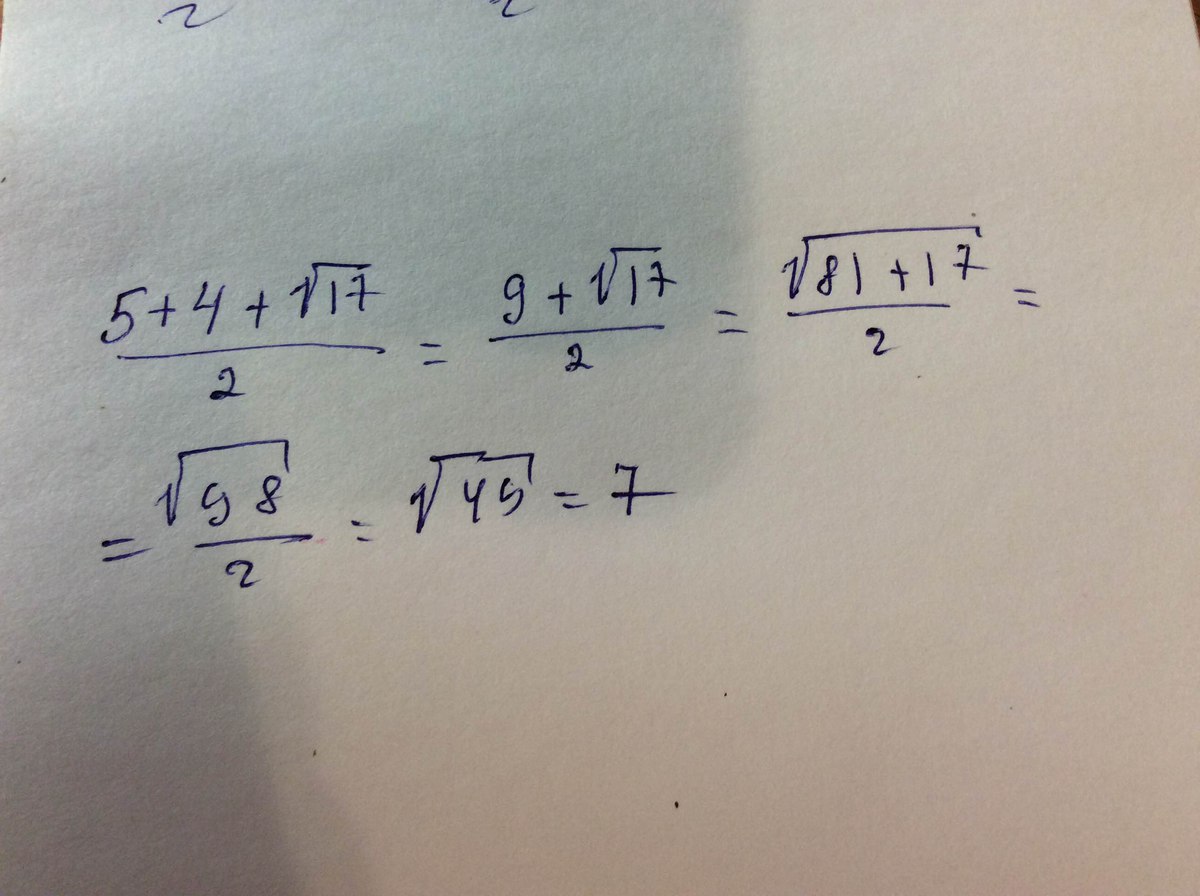 (5+4+√17)/2 = (9+√17)/2 = √(81+17)/2 =
= √98/2 = √49 = 7